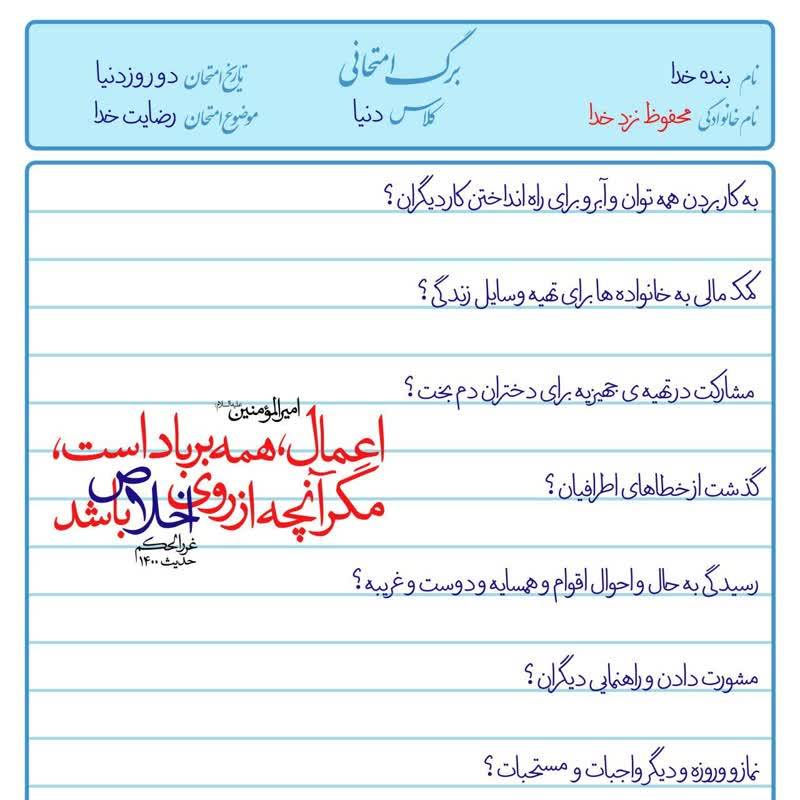 برگ امتحانی
نام بنده خدا
تاریخ امتحان دو روز دنیا
نام خانوادگی محفوظ نزد خدا
کلاس دنیا
موضوع امتحان رضایت خدا
به کار بردن همه توان و آبرو برای راه انداختن کار دیگران؟
کمک مالی به خانواده ها برای تهیه وسایل زندگی؟
مشارکت در تهیه ی جهیزیه برای دختران دم بخت؟
امیرالمؤمنین علیه‌السلام:
اعمال، همه بر باد است،
مگر آنچه از روی اخلاص باشد
غررالحکم
حدیث ۱۴۰۰
گذشت از خطاهای اطرافیان؟
رسیدگی به حال و احوال اقوام و همسایه و دوست و غریبه؟
مشورت دادن و راهنمایی دیگران؟
نماز و روزه و دیگر واجبات و مستحبات؟